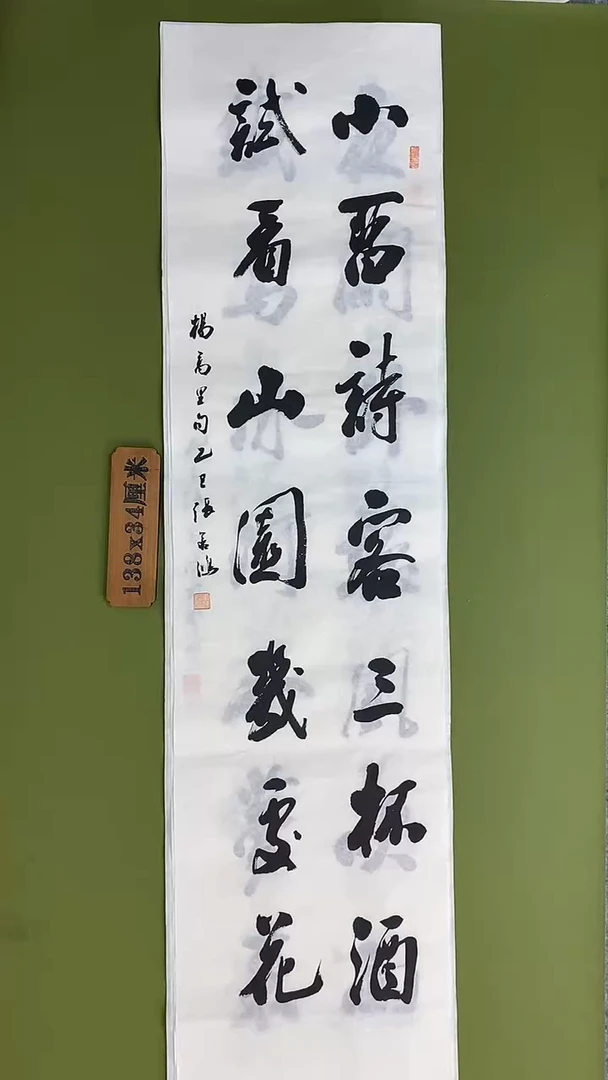 小留詩客三杯酒
試看山園幾處花
楊萬里句乙巳張
138x34厘米